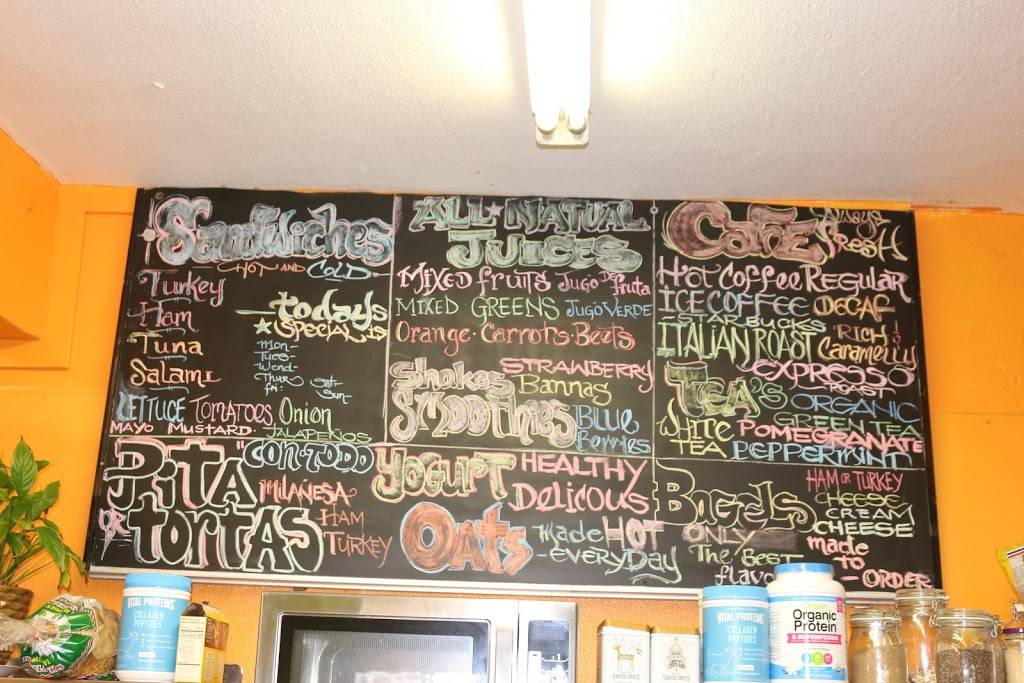 Sandwiches
HOT AND COLD
Turkey
Ham
Tuna
Salami
today's
SPECIAL IS
Mon-
Tues-
Wend-
Thur
fri:
Sat-
Sun-
LETTUCE TOMATOES Onion
MAYO MUSTARD JALAPEÑOS
PITA "CON-TODO
OR TORTAS
MILANESA
HAM
TURKEY
ALL NATUAL
JUICES
MIXED fRUITS JUGO DE fruta
MIXED GREENS JUGO VERDE
Orange Carrots Beets
Shakes
SMOOTHIES
STRAWBERRY
BANNAS
BLUE
Berries
YOGURT HEALTHY
DELICOUS
Oats made HOT
- EVERYDAY
CAFE Always
fresh
Hot Coffee Regular
ICE COFFEE DECAF
STARBUCKS
ITALIAN ROAST RICH
Caramelly
EXPRESSO
ROAST
TEA'S ORGANIC
GREEN TEA
WHITE
TEA
POMEGRANATE
PEPPERMINT
Bagels
HAM OR TURKEY
CHEESE
CREAM
CHEESE
ONLY
The BEST
flavo
made
TO
- ORDER
VITAL PROTEINS
COLLAGEN
PEPTIDES
VITAL PROTEINS
COLLAGEN
PEPTIDES
Organic
Protein
& SUPERFOODS